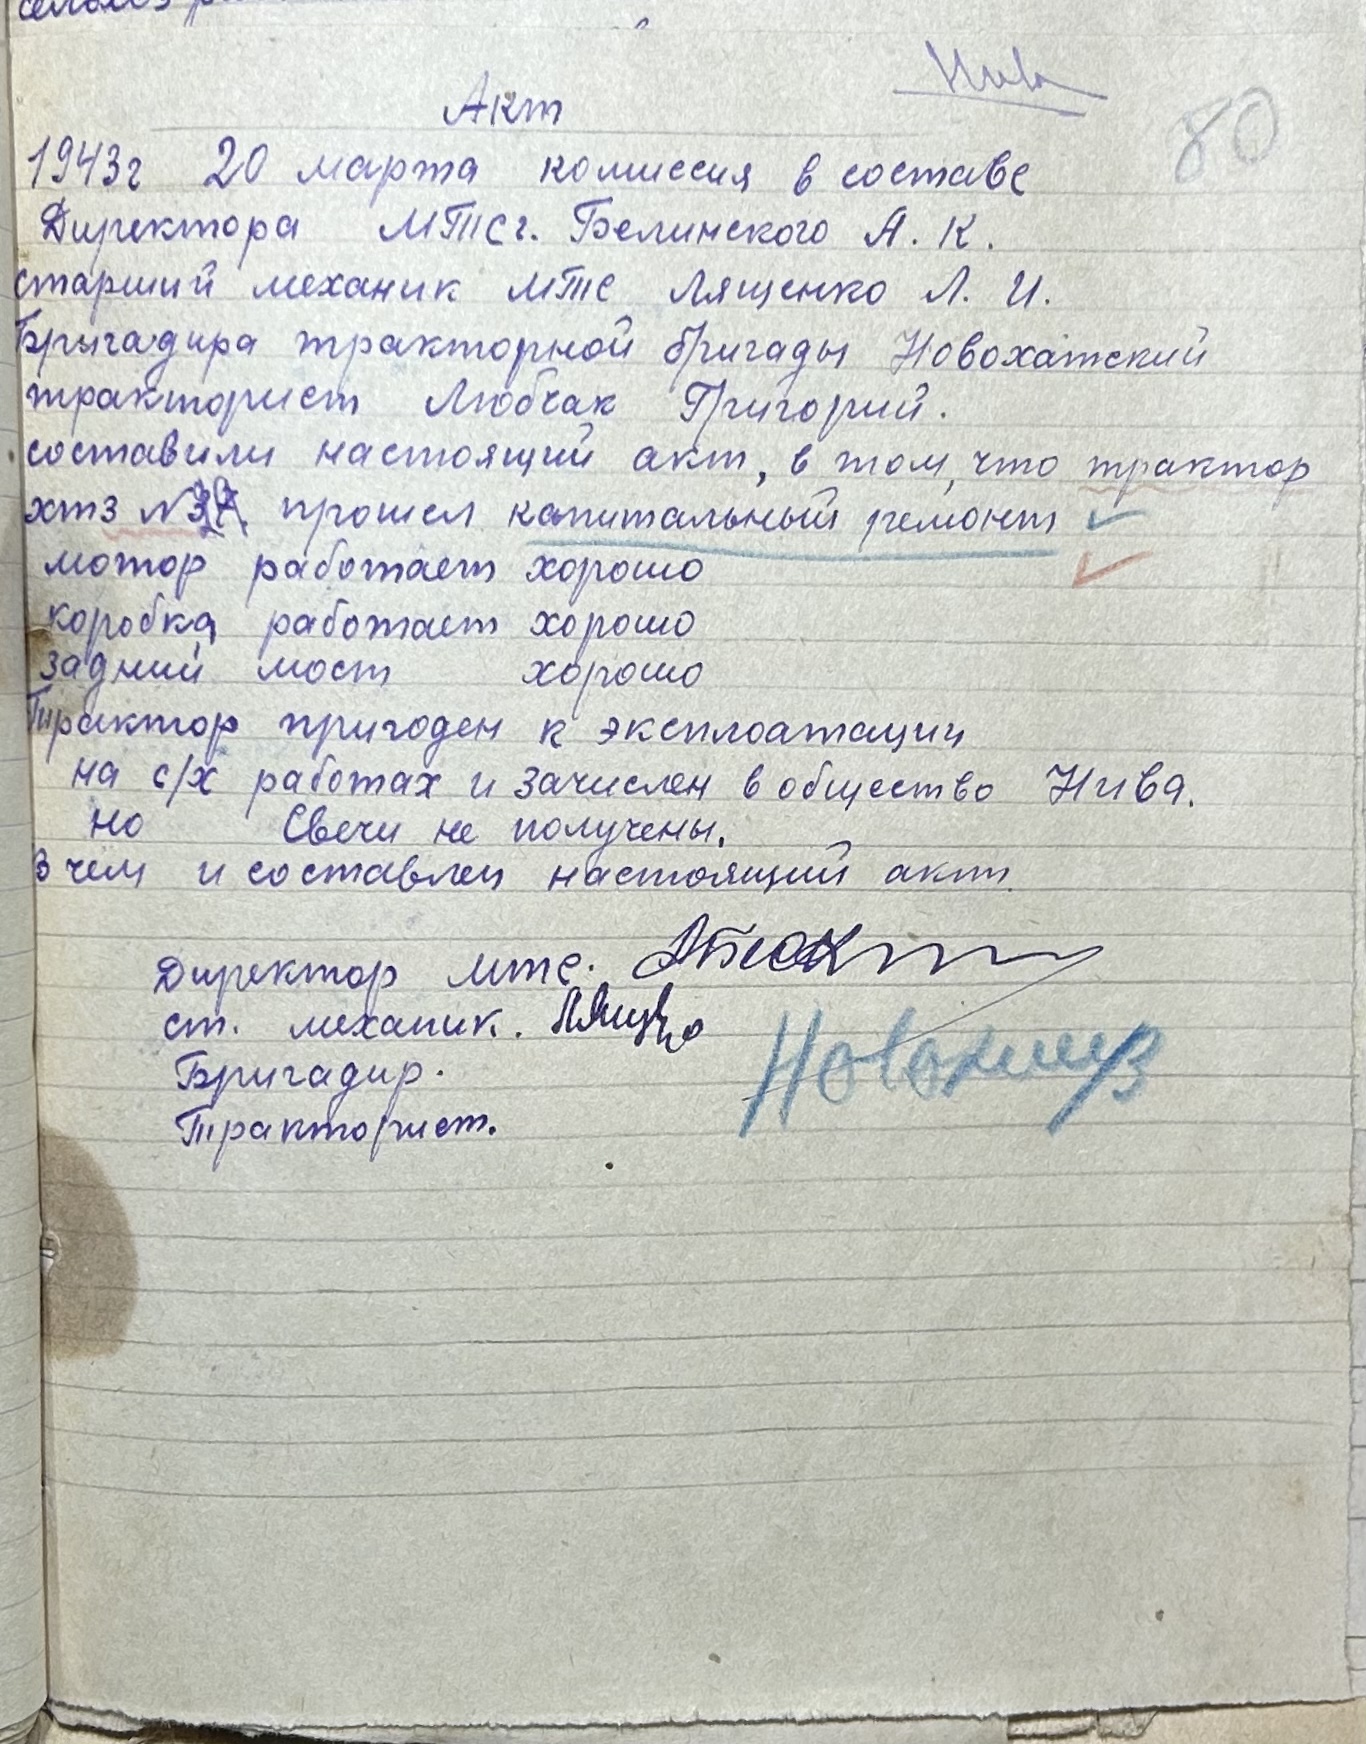 Нива
80
Акт
1943г 20 марта комиссия в составе
Директора МТС г. Белинского А. К.
старший механик МТС Лященко Л. И.
Бригадира тракторной бригады Новохатский
тракторист Любчак Григорий.
составили настоящий акт, в том, что трактор
хтз № прошел капитальный ремонт
мотор работает хорошо
коробка работает хорошо
задний мост хорошо
Трактор пригоден к эксплоатации
на с/х работах и зачислен в общество Нива.
но Свечи не получены.
В чем и составлен настоящий акт.
Директор мтс.
ст. механик.
Бригадир.
Тракторист.